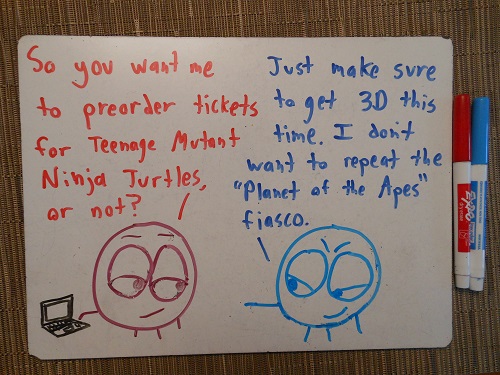 So you want me
to preorder tickets
for Teenage Mutant
Ninja Turtles,
or not?
Just make sure
to get 3D this
time. I don't
want to repeat the
"Planet of the Apes"
fiasco.
EXPO